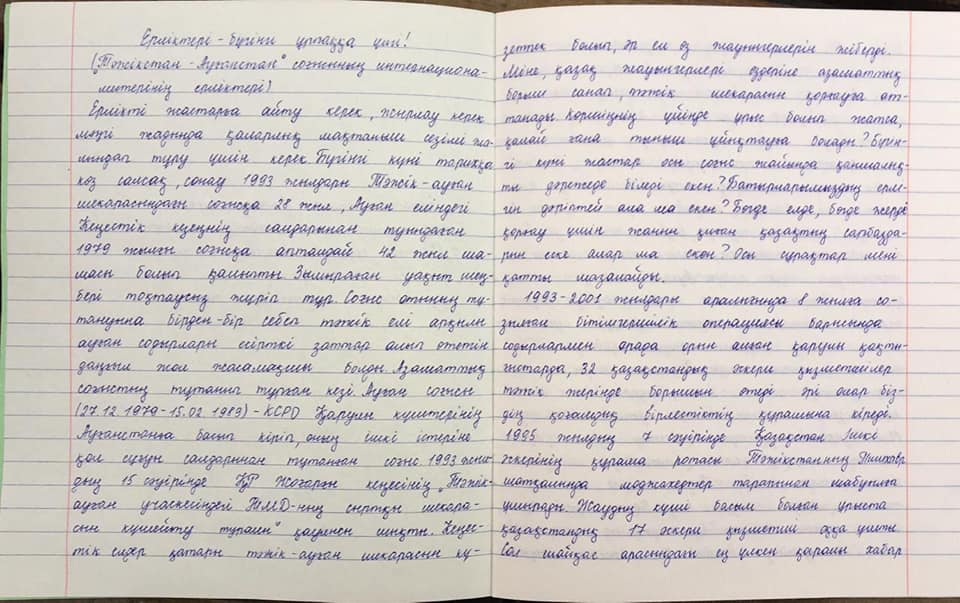 Ерліктері - бүгінгі ұрпаққа үлгі!
("Тәжікстан - Ауғанстан" соғысының интернациона-
листерінің ерліктері)
Ерлікті жастарға айту керек, жырлау керек
мәңгі жадында қаларлық мақтаныш сезімі жа-
лындап тұру үшін керек. Бүгінгі күні тарихқа
көз салсақ, сонау 1993 жылдары Тәжік-ауған
шекарасындағы соғысқа 28 жыл, Ауған еліндегі
Кеңестік кезеңнің салдарынан туындаған
1979 жылғы соғысқа аттандай 42 жыл ша-
масы болып қалыпты. Зымыраған уақыт шең-
бері тоқтаусыз жүріп тұр. Соғыс отының тұ-
тануына бірден-бір себеп тәжік елі арқылы
ауған содырлары есірткі заттар алып өтетін
даңғыл жол жасамақшы болды. Азаматтық
соғыстың тұтанып тұрған кезі. Ауған соғысы
(27.12.1979-15.02.1989) - КСРО Қарулы күштерінің
Ауғанстанға басып кіріп, оның ішкі істеріне
қол сұғуы салдарынан тұтанған соғыс. 1993 жыл-
дың 15 сәуірінде ҚР Жоғарғы кеңесінің "Тәжік-
ауған учаскесіндегі ТМД-ның сыртқы шекара-
сын күшейту туралы" қаулысы шықты. Кеңес-
тік елдер қатары тәжік-ауған шекарасын кү-
зеттек болып, әр ел өз жауынгерлерін жіберді.
Міне, қазақ жауынгерлері өздеріне азаматтық
борыш санап, тәжік шекарасын қорғауға ат-
танады. Көршіңнің үйінде ұрыс болып жатса,
қалай ғана тыныш ұйықтауға болады? Бүгін-
гі күні жастар осы соғыс жайында қаншалық-
ты дәрежеде біледі екен? Батырларымыздың ерлі-
гін дәріптей ала ма екен? Бөгде елде, бөгде жерді
қорғау үшін жанын қиған қазақтың сарбазда-
рын еске алар ма екен? Осы сұрақтар мені
қатты мазалайды.
1993-2001 жылдары аралығында 8 жылға со-
зылған бітімгершілік операциясы барысында
содырлармен арада орын алған қарулы қақты-
ғыстарда, 32 қазақстандық әскери қызметшілер
тәжік жерінде борышын өтеді әрі олар біз-
дің қоғамдық бірлестіктің құрамына кіреді.
1995 жылдың 7 сәуірінде Қазақстан Ішкі
әскерінің құрама ротасы Тәжікстанның
шатқалында моджахедтер тарапынан шабуылға
ұшырады. Жаудың күші басым болған ұрыста
қазақстандық 17 әскери қызметші оққа ұшты.
Бұл шайқас арасындағы ең үлкен қаралы хабар